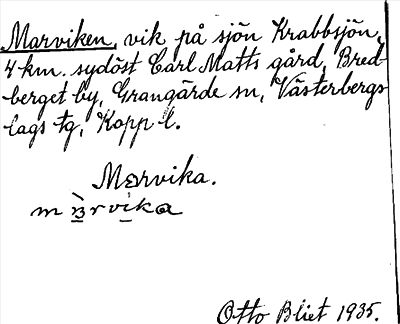 Marviken, vik på sjön Krabbsjön,
4 km. sydöst Carl Matts gård, Bred-
berget by, Grangärde sn, Västerbergs-
lags tg, Kopp l.
Marvika.
Otto Blixt 1935.